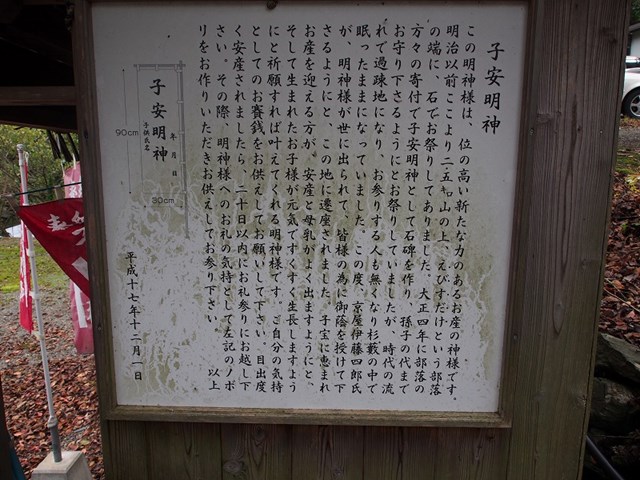 子安明神
この明神様は、位の高い新たな力のあるお産の神様です。
明治以前ここより二五㌔山の上、えびすだけという部落
の端に、石でお祭りしてありました。大正四年に部落の
方々の寄付で子安明神として石碑を作り、孫子の代まで
お守り下さるようにとお祭りしていましたが、時代の流
れで過疎地になり、お参りする人も無くなり杉藪の中で
眠ったままになっていました。この度、京屋伊藤四郎氏
が、明神様が世に出られて、皆様の為に御蔭を授けて下
さるようにと、この地に遷座されました。子宝に恵まれ
お産を迎える方が、安産と母乳がよく出ますようにと、
そして生まれたお子様が元気ですくすく生長しますよう
にと祈願すれば叶えてくれる明神様です。ご自分の気持
としてのお賽銭をお供えしてお願いして下さい。目出度
く安産されましたら、二十日以内にお礼参りにお越し下
さい。その際、明神様へのお礼の気持として左記のノボ
リをお作りいただきお供えしてお参り下さい。
以上
年 月 日
子安明神
子供氏名
90cm
30cm
平成十七年十二月一日